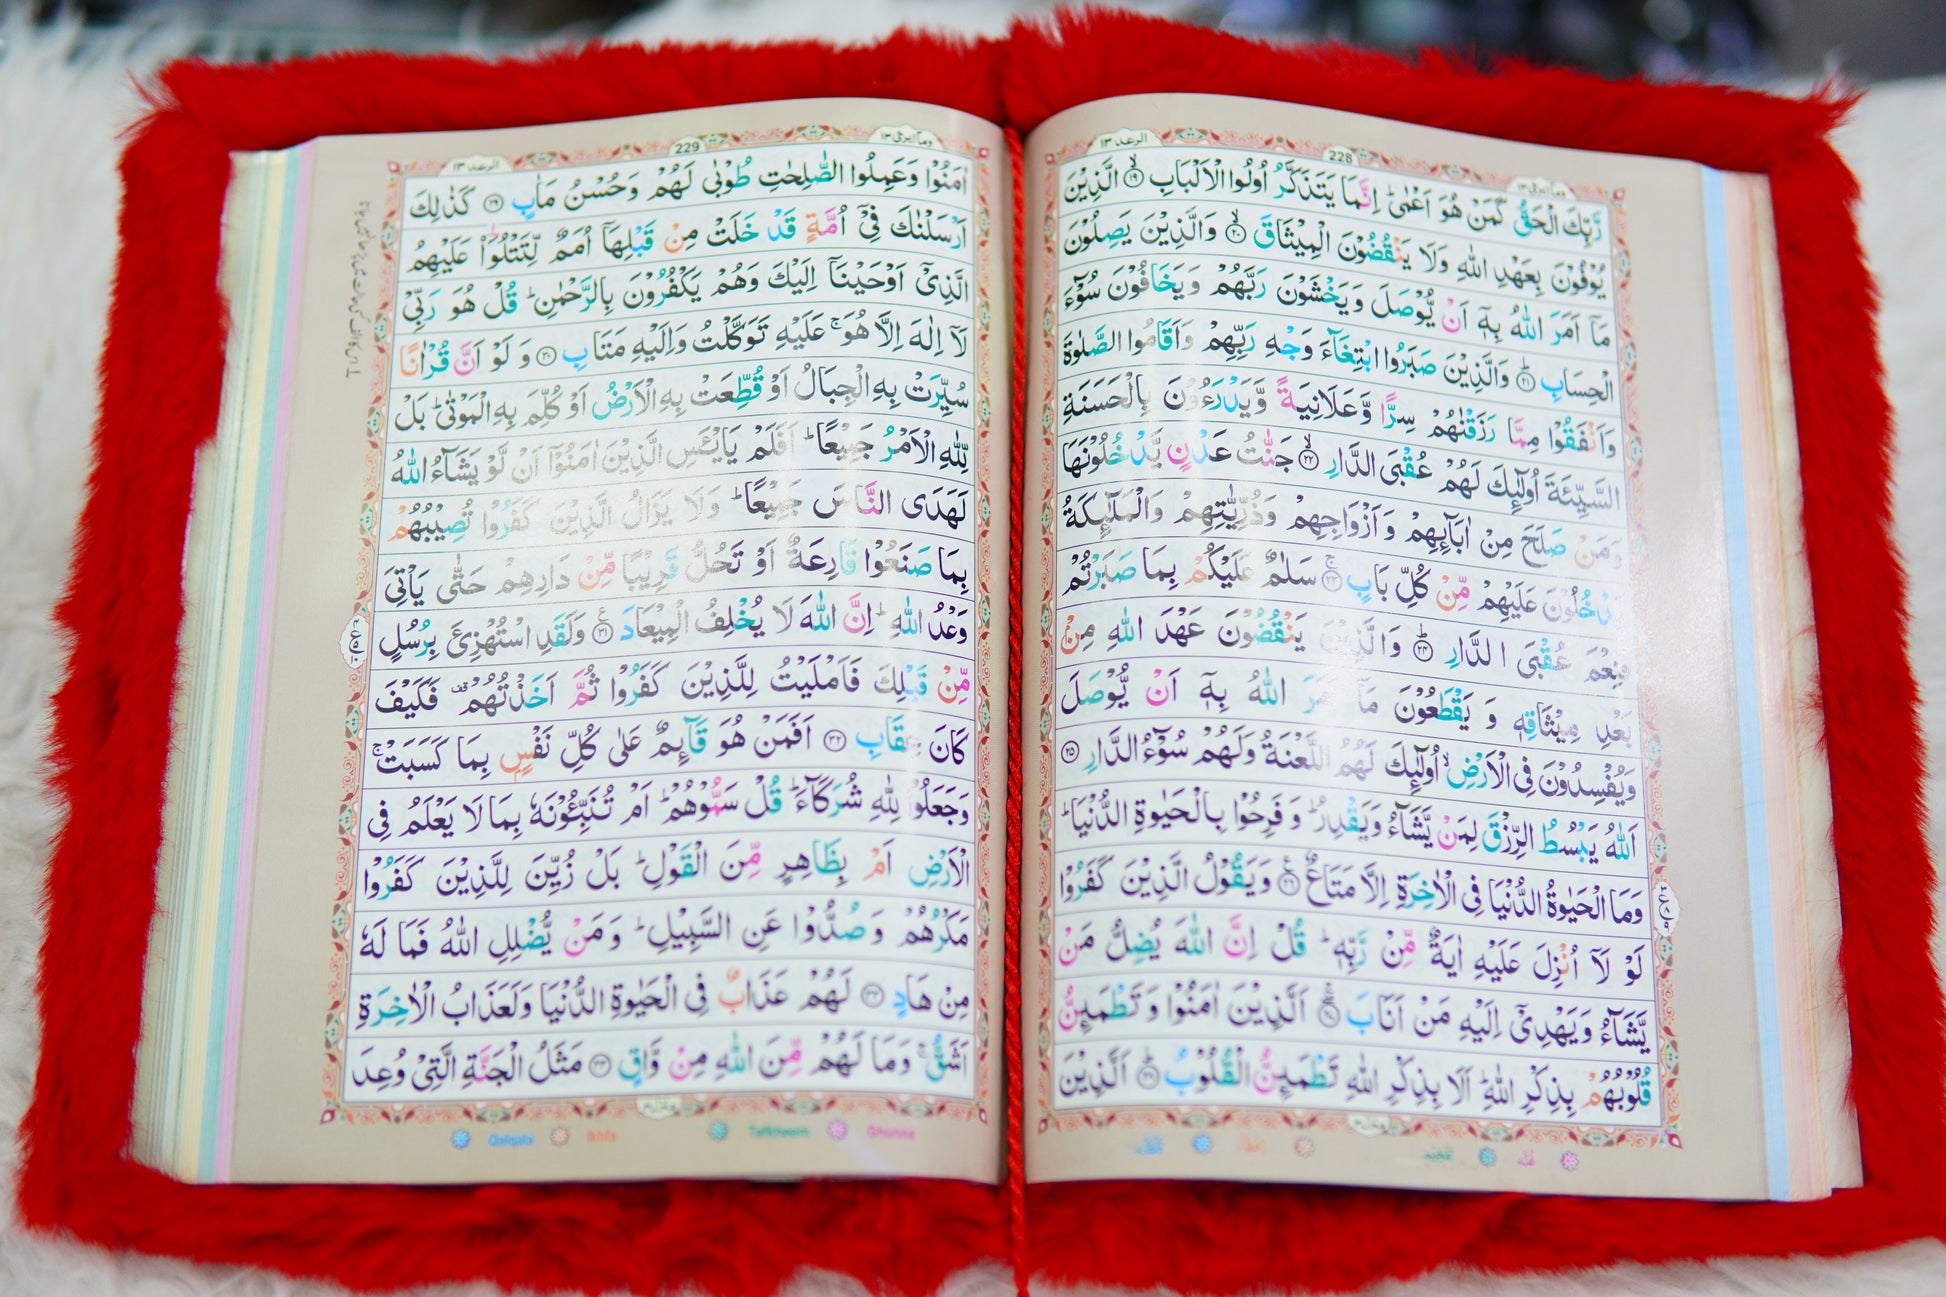 الرعد ١٣
228
ومآ ابرئ ١٣
رَّبِّكَ الْحَقُّ كَمَنْ هُوَ اَعْمٰىؕ اِنَّمَا يَتَذَكَّرُ اُولُوا الْاَلْبَابِ ۙ‏﴿۱۹﴾ الَّذِيْنَ
يُوْفُوْنَ بِعَهْدِ اللّٰهِ وَلَا يَنْقُضُوْنَ الْمِيْثَاقَ ۙ‏﴿۲۰﴾ وَالَّذِيْنَ يَصِلُوْنَ
مَاۤ اَمَرَ اللّٰهُ بِهٖۤ اَنْ يُّوْصَلَ وَيَخْشَوْنَ رَبَّهُمْ وَيَخَافُوْنَ سُوْٓءَ
الْحِسَابِؕ‏﴿۲۱﴾ وَالَّذِيْنَ صَبَرُوا ابْتِغَآءَ وَجْهِ رَبِّهِمْ وَاَقَامُوا الصَّلٰوةَ
وَاَنْفَقُوْا مِمَّا رَزَقْنٰهُمْ سِرًّا وَّعَلَانِيَةً وَّيَدْرَءُوْنَ بِالْحَسَنَةِ
السَّيِّئَةَ اُولٰٓئِكَ لَهُمْ عُقْبَى الدَّارِۙ‏﴿۲۲﴾ جَنّٰتُ عَدْنٍ يَّدْخُلُوْنَهَا
وَمَنْ صَلَحَ مِنْ اٰبَآئِهِمْ وَاَزْوَاجِهِمْ وَذُرِّيّٰتِهِمْ وَالْمَلٰٓئِكَةُ
يَدْخُلُوْنَ عَلَيْهِمْ مِّنْ كُلِّ بَابٍۚ‏﴿۲۳﴾ سَلٰمٌ عَلَيْكُمْ بِمَا صَبَرْتُمْ
فَنِعْمَ عُقْبَى الدَّارِؕ‏﴿۲۴﴾ وَالَّذِيْنَ يَنْقُضُوْنَ عَهْدَ اللّٰهِ مِنْۢ
بَعْدِ مِيْثَاقِهٖ وَيَقْطَعُوْنَ مَاۤ اَمَرَ اللّٰهُ بِهٖۤ اَنْ يُّوْصَلَ
وَيُفْسِدُوْنَ فِى الْاَرْضِۙ اُولٰٓئِكَ لَهُمُ اللَّعْنَةُ وَلَهُمْ سُوْٓءُ الدَّارِ‏﴿۲۵﴾
اَللّٰهُ يَبْسُطُ الرِّزْقَ لِمَنْ يَّشَآءُ وَيَقْدِرُؕ وَفَرِحُوْا بِالْحَيٰوةِ الدُّنْيَاؕ
وَمَا الْحَيٰوةُ الدُّنْيَا فِى الْاٰخِرَةِ اِلَّا مَتَاعٌ‏﴿۲۶﴾ وَيَقُوْلُ الَّذِيْنَ كَفَرُوْا
لَوْ لَاۤ اُنْزِلَ عَلَيْهِ اٰيَةٌ مِّنْ رَّبِّهٖؕ قُلْ اِنَّ اللّٰهَ يُضِلُّ مَنْ
يَّشَآءُ وَيَهْدِىْۤ اِلَيْهِ مَنْ اَنَابَ‏﴿۲۷﴾ اَلَّذِيْنَ اٰمَنُوْا وَتَطْمَئِنُّ
قُلُوْبُهُمْ بِذِكْرِ اللّٰهِؕ اَلَا بِذِكْرِ اللّٰهِ تَطْمَئِنُّ الْقُلُوْبُؕ‏﴿۲۸﴾ اَلَّذِيْنَ
الرعد ١٣
229
ومآ ابرئ ١٣
اٰمَنُوْا وَعَمِلُوا الصّٰلِحٰتِ طُوْبٰى لَهُمْ وَحُسْنُ مَاٰبٍ‏﴿۲۹﴾ كَذٰلِكَ
اَرْسَلْنٰكَ فِىْۤ اُمَّةٍ قَدْ خَلَتْ مِنْ قَبْلِهَاۤ اُمَمٌ لِّتَتْلُوَا۟ عَلَيْهِمُ
الَّذِىْۤ اَوْحَيْنَاۤ اِلَيْكَ وَهُمْ يَكْفُرُوْنَ بِالرَّحْمٰنِؕ قُلْ هُوَ رَبِّىْ
لَاۤ اِلٰهَ اِلَّا هُوَۚ عَلَيْهِ تَوَكَّلْتُ وَاِلَيْهِ مَتَابِ‏﴿۳۰﴾ وَلَوْ اَنَّ قُرْاٰنًا
سُيِّرَتْ بِهِ الْجِبَالُ اَوْ قُطِّعَتْ بِهِ الْاَرْضُ اَوْ كُلِّمَ بِهِ الْمَوْتٰىؕ بَلْ
لِّلّٰهِ الْاَمْرُ جَمِيْعًاؕ اَفَلَمْ يَايْـَٔسِ الَّذِيْنَ اٰمَنُوْۤا اَنْ لَّوْ يَشَآءُ اللّٰهُ
لَهَدَى النَّاسَ جَمِيْعًاؕ وَلَا يَزَالُ الَّذِيْنَ كَفَرُوْا تُصِيْبُهُمْ
بِمَا صَنَعُوْا قَارِعَةٌ اَوْ تَحُلُّ قَرِيْبًا مِّنْ دَارِهِمْ حَتّٰى يَاْتِىَ
وَعْدُ اللّٰهِؕ اِنَّ اللّٰهَ لَا يُخْلِفُ الْمِيْعَادَ‏﴿۳۱﴾ وَلَقَدِ اسْتُهْزِئَ بِرُسُلٍ
مِّنْ قَبْلِكَ فَاَمْلَيْتُ لِلَّذِيْنَ كَفَرُوْا ثُمَّ اَخَذْتُهُمْ فَكَيْفَ
كَانَ عِقَابِ‏﴿۳۲﴾ اَفَمَنْ هُوَ قَآئِمٌ عَلٰى كُلِّ نَفْسٍۢ بِمَا كَسَبَتْۚ
وَجَعَلُوْا لِلّٰهِ شُرَكَآءَؕ قُلْ سَمُّوْهُمْؕ اَمْ تُنَبِّئُوْنَهٗ بِمَا لَا يَعْلَمُ فِى
الْاَرْضِ اَمْ بِظَاهِرٍ مِّنَ الْقَوْلِؕ بَلْ زُيِّنَ لِلَّذِيْنَ كَفَرُوْا
مَكْرُهُمْ وَصُدُّوْا عَنِ السَّبِيْلِؕ وَمَنْ يُّضْلِلِ اللّٰهُ فَمَا لَهٗ
مِنْ هَادٍ‏﴿۳۳﴾ لَهُمْ عَذَابٌ فِى الْحَيٰوةِ الدُّنْيَا وَلَعَذَابُ الْاٰخِرَةِ
اَشَقُّۚ وَمَا لَهُمْ مِّنَ اللّٰهِ مِنْ وَّاقٍ‏﴿۳۴﴾ مَثَلُ الْجَنَّةِ الَّتِىْ وُعِدَ
Qalqala Ikhfa Tafkheem Ghunna